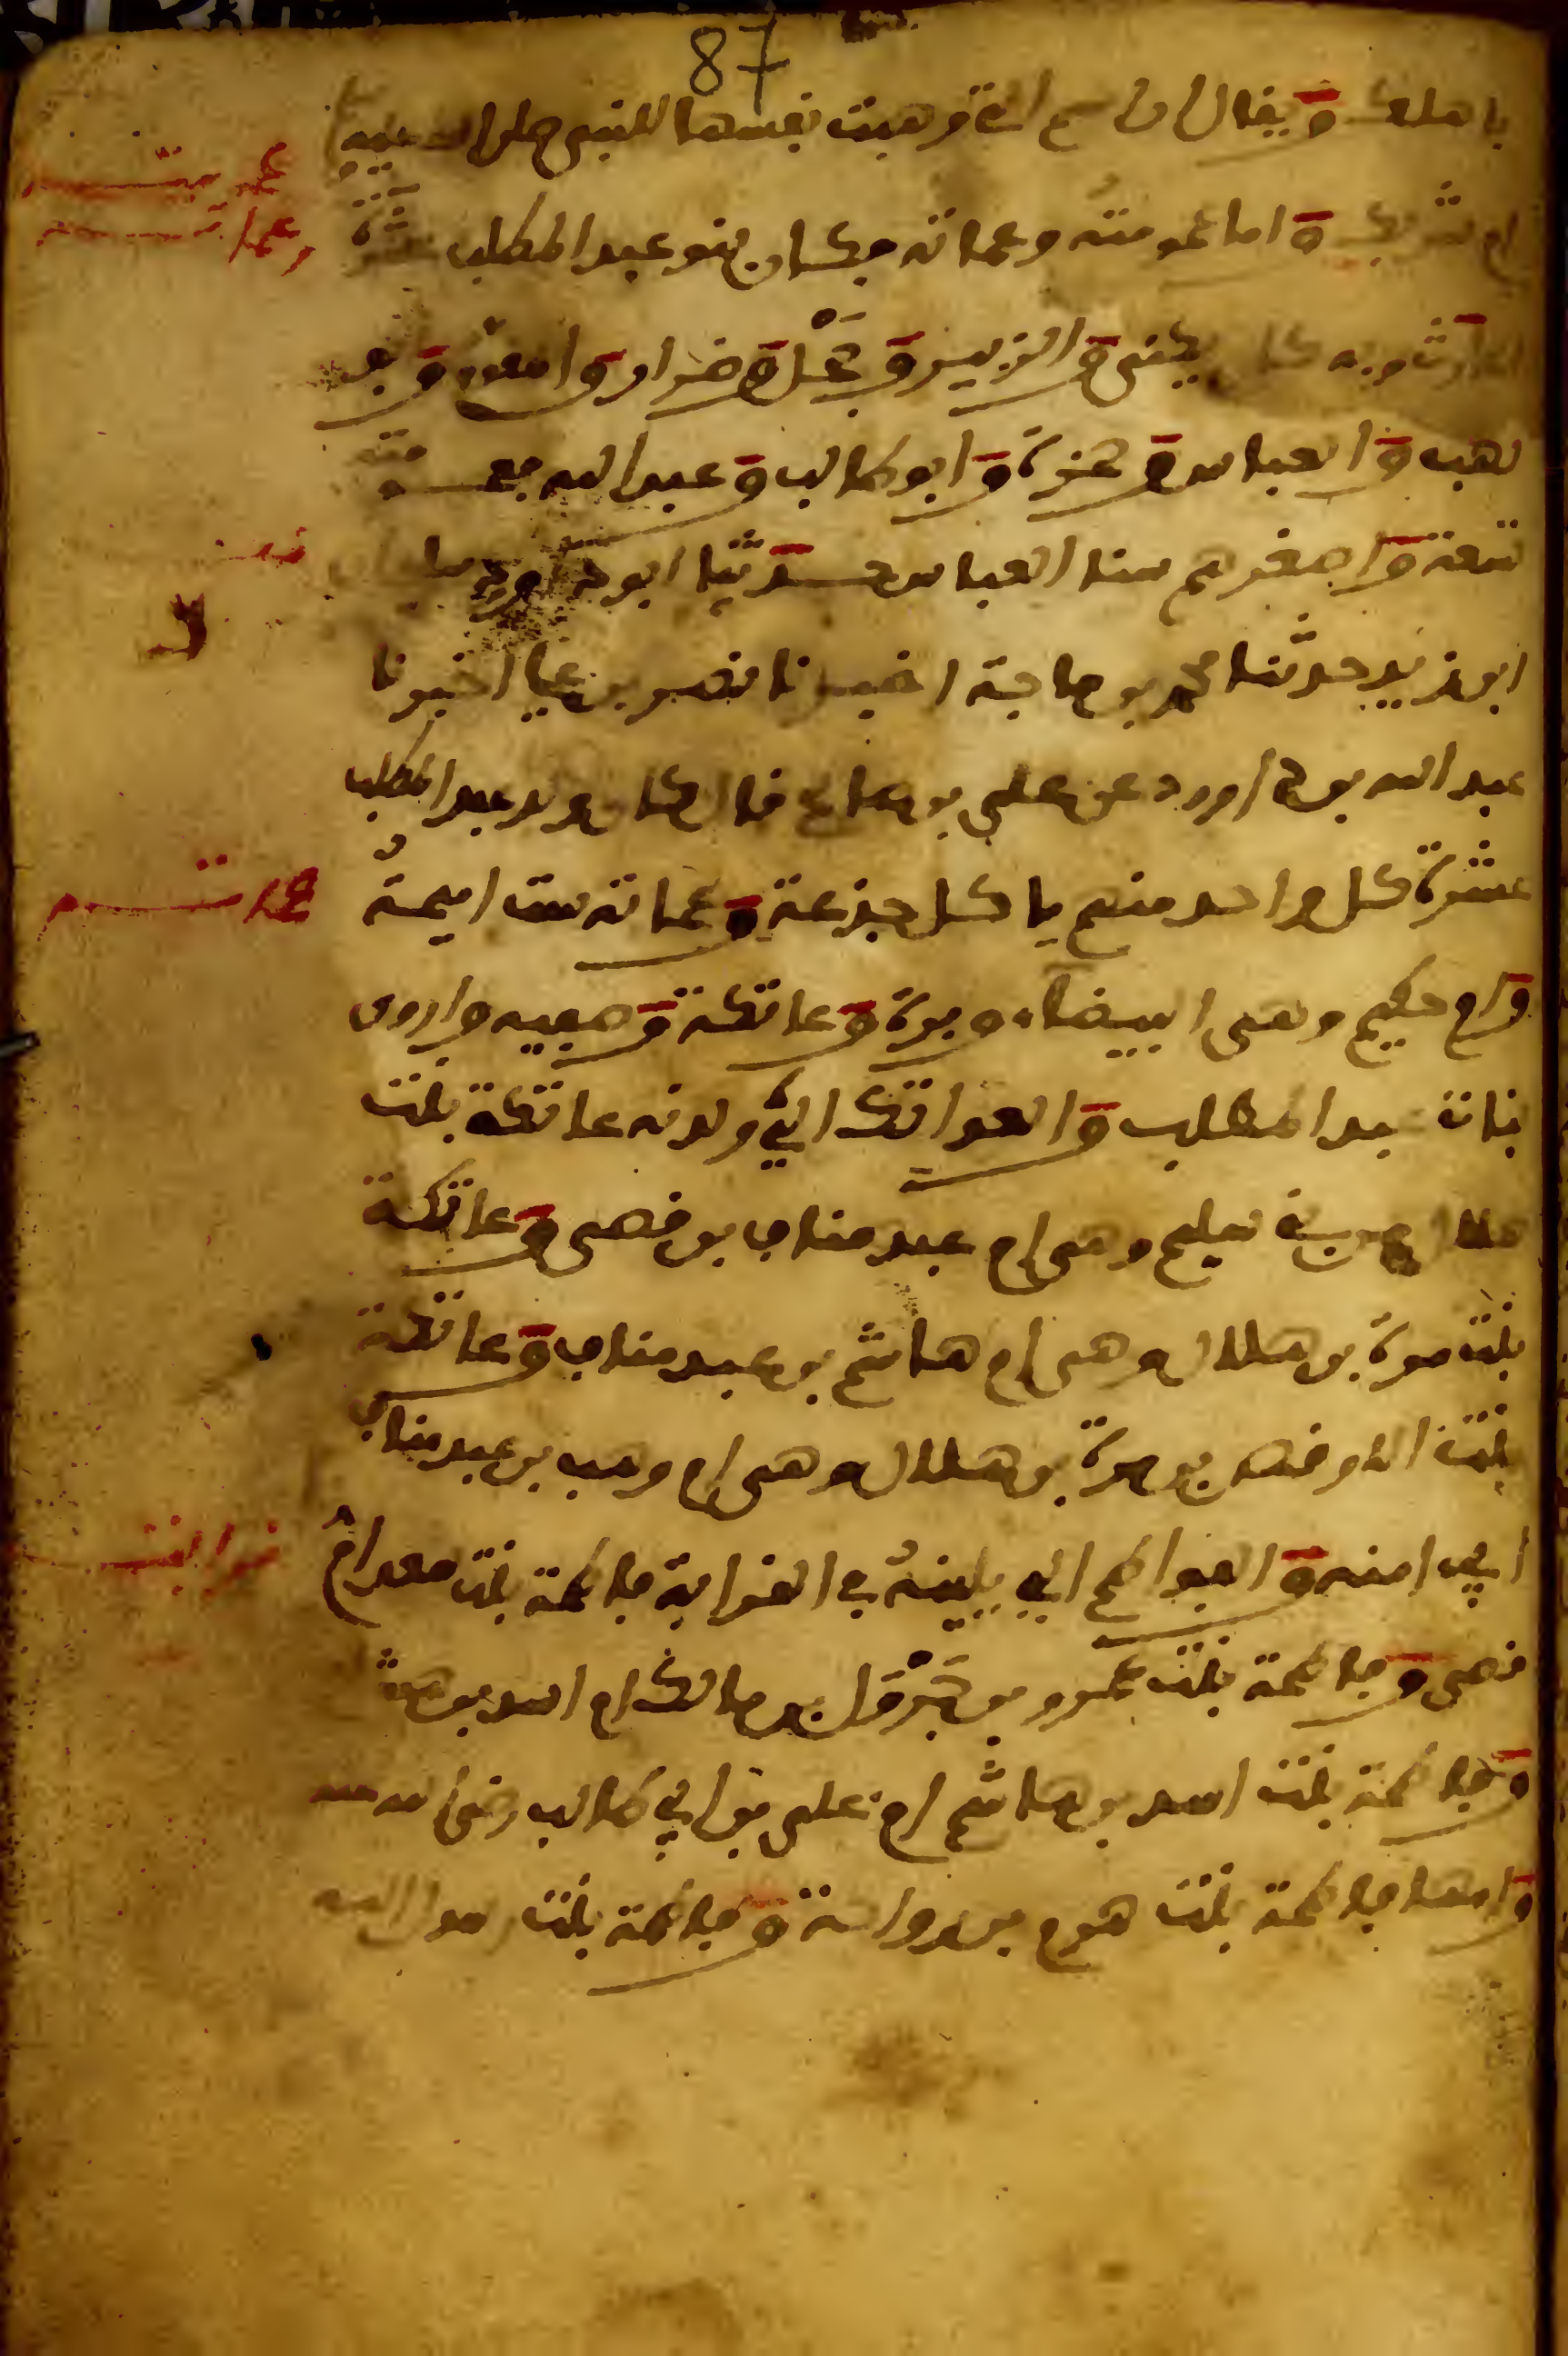 87
باهلك ويقال ان اسم التي وهبت نفسها للنبي صلى الله عليه
ام شريك واما عمومته وعماته فكان بنو عبد المطلب عشرة
الحارث وبه كان يكنى والزبير وحجل وضرار والمقوم وابو
لهب والعباس وحمزة وابو طالب وعبد الله فعمومته
تسعة واصغرهم سنا العباس حدثنا ابو
ابو زيد حدثنا محمد بن ماجة اخبرنا نصر بن علي اخبرنا
عبد الله بن داوود عن علي بن صالح قال كان ولد عبد المطلب
عشرة كل واحد منهم ياكل جذعة وعماته ست اميمة
وام حكيم وهي البيضاء وبرة وعاتكة وصفيه واروى
بنات عبد المطلب والعواتك التي ولدنه عاتكة بنت
هلال من بني سليم وهي ام عبد مناف بن قصي وعاتكة
بنت مرة بن هلال وهي ام هاشم بن عبد مناف وعاتكة
بنت الاوقص بن مرة بن هلال وهي ام وهب بن عبد مناف
ابي امنه والفواطم التي يلينه في القرابة فاطمة بنت سعد ام
قصي وفاطمة بنت عمرو بن جرول بن مالك ام اسد بن هاشم
وفاطمة بنت اسد بن هاشم ام علي بن ابي طالب رضي الله عنه
وامها فاطمة بنت هرم بن رواحة وفاطمة بنت
عمومته
وعماته
عماته